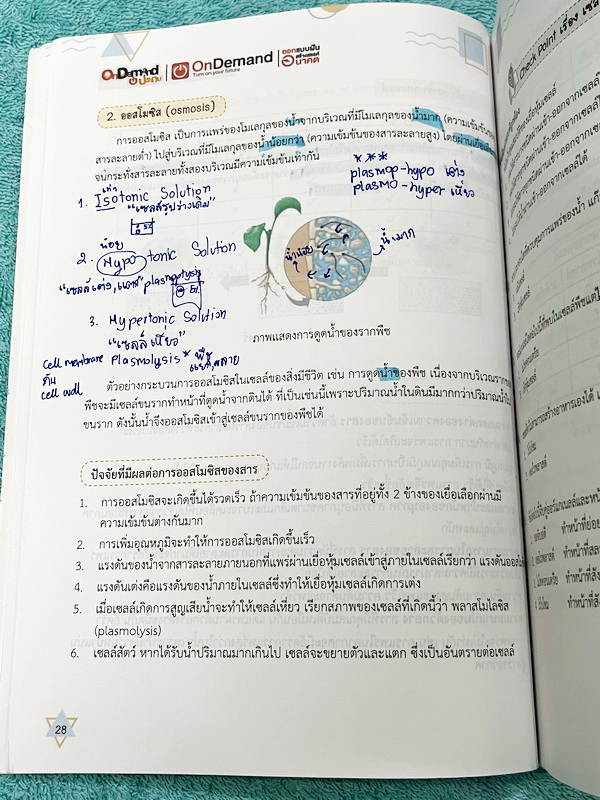 OnDemand
OnDemand
Turn on your future
ออกแบบฝัน
สร้างสรรค์
อนาคต
2. ออสโมซิส (osmosis)
การออสโมซิส เป็นการแพร่ของโมเลกุลของน้ำจากบริเวณที่มีโมเลกุลของน้ำมาก (ความเข้มข้นของ
สารละลายต่ำ) ไปสู่บริเวณที่มีโมเลกุลของน้ำน้อยกว่า (ความเข้มข้นของสารละลายสูง) โดยผ่านเยื่อเลือก
จนกระทั่งสารละลายทั้งสองบริเวณมีความเข้มข้นเท่ากัน
เท่า
1. Isotonic Solution
"เซลล์รูปร่างเดิม"
***
plasmop-hypo เต่ง
plasmo-hyper เหี่ยว
น้อย
2. Hypotonic Solution
"เซลล์เต่ง, แตก" plasmoptysis
น้ำน้อย
น้ำมาก
3. Hypertonic Solution
"เซลล์เหี่ยว"
Plasmolysis*
cell membrane
cell wall
ภาพแสดงการดูดน้ำของรากพืช
ตัวอย่างกระบวนการออสโมซิสในเซลล์ของสิ่งมีชีวิต เช่น การดูดน้ำของพืช เนื่องจากบริเวณราก
พืชจะมีเซลล์ขนรากทำหน้าที่ดูดน้ำจากดินได้ ที่เป็นเช่นนี้เพราะปริมาณน้ำในดินมีมากกว่าปริมาณน้ำใน
ขนราก ดังนั้นน้ำจึงออสโมซิสเข้าสู่เซลล์ขนรากของพืชได้
ปัจจัยที่มีผลต่อการออสโมซิสของสาร
1. การออสโมซิสจะเกิดขึ้นได้รวดเร็ว ถ้าความเข้มข้นของสารที่อยู่ทั้ง 2 ข้างของเยื่อเลือกผ่านมี
ความเข้มข้นต่างกันมาก
2. การเพิ่มอุณหภูมิจะทำให้การออสโมซิสเกิดขึ้นเร็ว
3. แรงดันของน้ำจากสารละลายภายนอกที่แพร่ผ่านเยื่อหุ้มเซลล์เข้าสู่ภายในเซลล์เรียกว่า แรงดันออสโม
4. แรงดันเต่งคือแรงดันของน้ำภายในเซลล์ซึ่งทำให้เยื่อหุ้มเซลล์เกิดการเต่ง
5. เมื่อเซลล์เกิดการสูญเสียน้ำจะทำให้เซลล์เหี่ยว เรียกสภาพของเซลล์ที่เกิดนี้ว่า พลาสโมไลซิส
(plasmolysis)
6. เซลล์สัตว์ หากได้รับน้ำปริมาณมากเกินไป เซลล์จะขยายตัวและแตก ซึ่งเป็นอันตรายต่อเซลล์
28
Check Point เรื่อง เซล